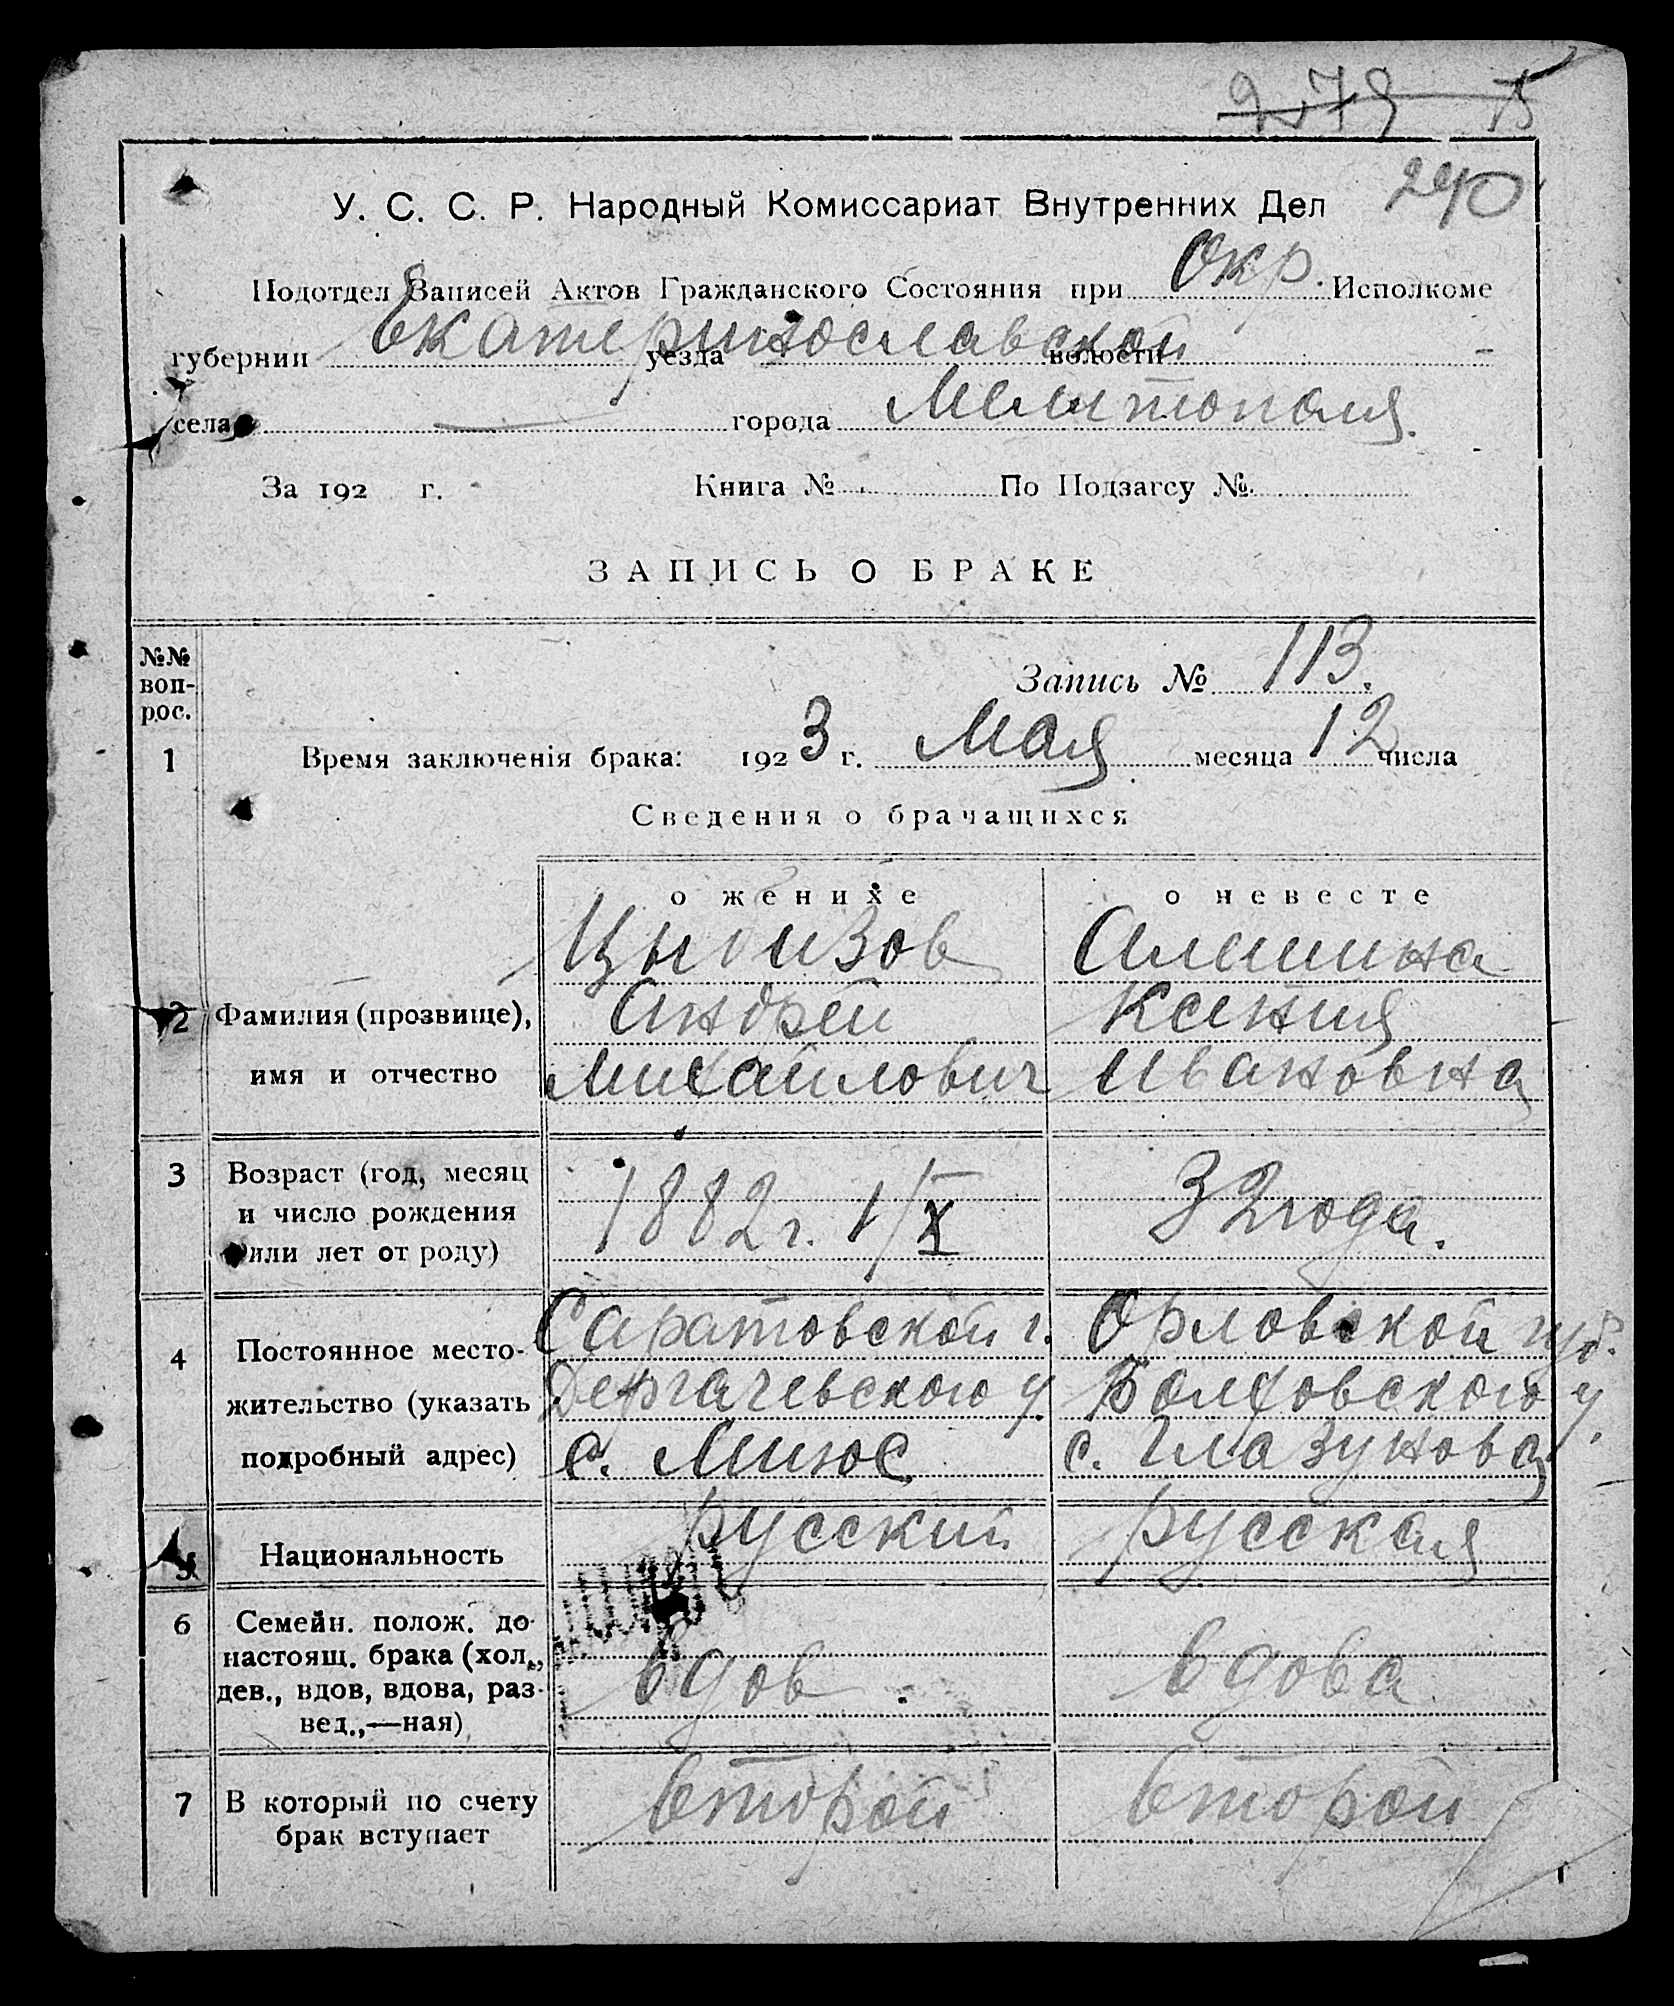 279 75
240
У. С. С. Р. Народный Комиссариат Внутренних Дел
Подотдел Записей Актов Гражданского Состояния при Окр. Исполкоме
губернии Екатеринославской уезда волости -
села — города Мелитополя.
За 192 г. Книга № По Подзагсу №
ЗАПИСЬ О БРАКЕ
№№ вопрос.
Запись № 113.
1 Время заключенія брака: 1923 г. Мая месяца 12 числа
Сведения о брачащихся
о женихе о невесте
2 Фамилия (прозвище), имя и отчество
Алешина
Андрей Ксения
Михайлович Ивановна
3 Возраст (год, месяц и число рождения или лет от роду)
1882 г. 1/X 32 года.
4 Постоянное местожительство (указать подробный адрес)
Саратовской г. Орловской губ.
Дергачевского у Болховского у.
с. Миюс с. Глазунова
5 Национальность русский русская
6 Семейн. полож. до настоящ. брака (хол., дев., вдов, вдова, развед.,—ная)
вдов вдова
7 В который по счету брак вступает
второй второй